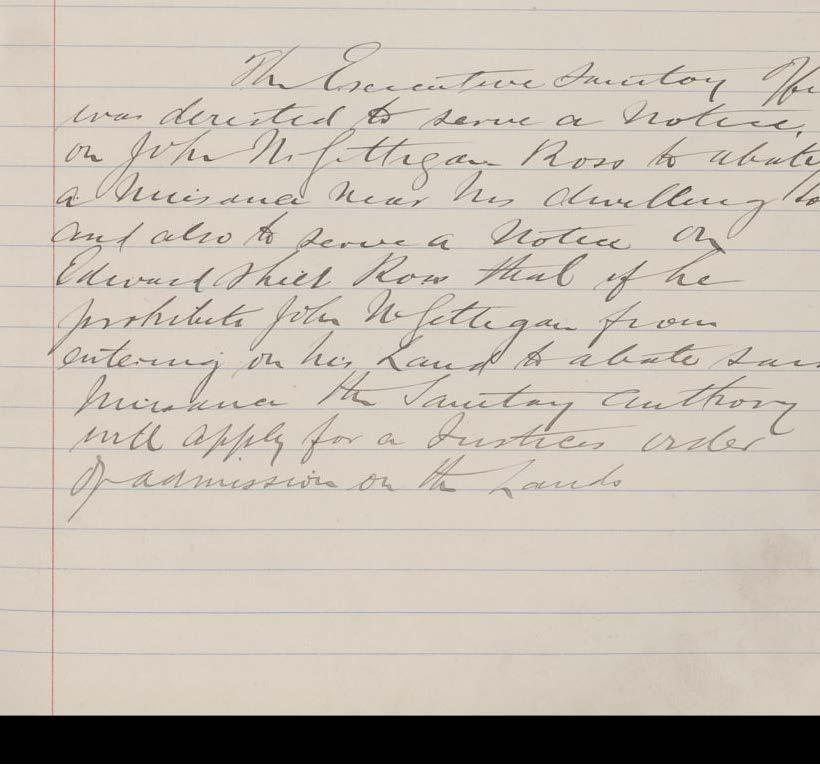 The Executive Sanitary Offi
was directed to serve a Notice
on John McGettigan Ross to abate
a Nuisance near his dwelling
and also to serve a Notice on
Edward Shiel Ross that if he
prohibits John McGettigan from
entering on his Land to abate
Nuisance the Sanitary Authority
will apply for a Justices order
of admission on the Lands